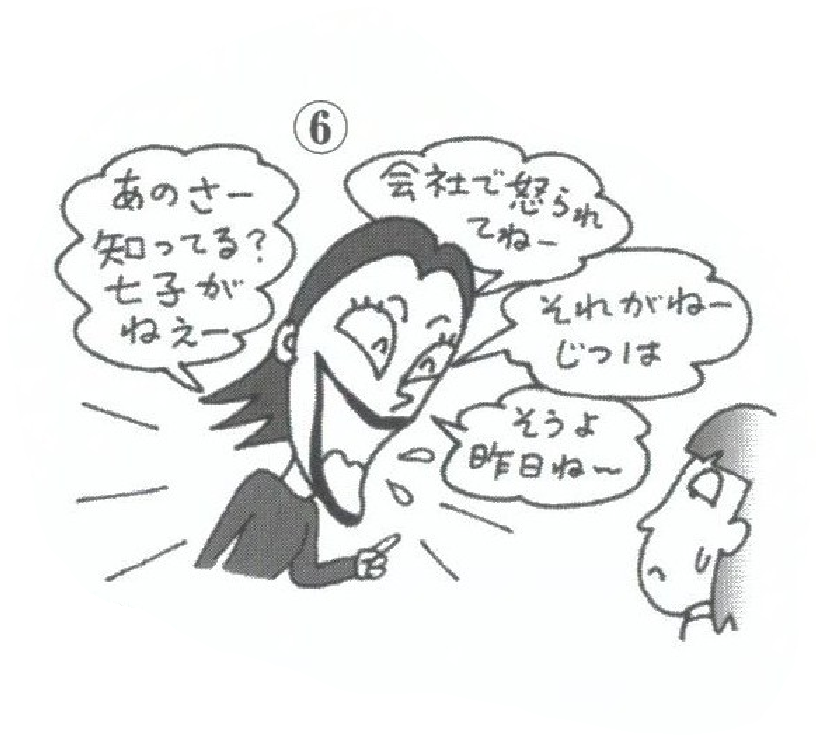 ⑥
あのさー
知ってる?
七子が
ねぇー
会社で怒られ
てねー
それがねー
じつは
そうよ
昨日ね〜